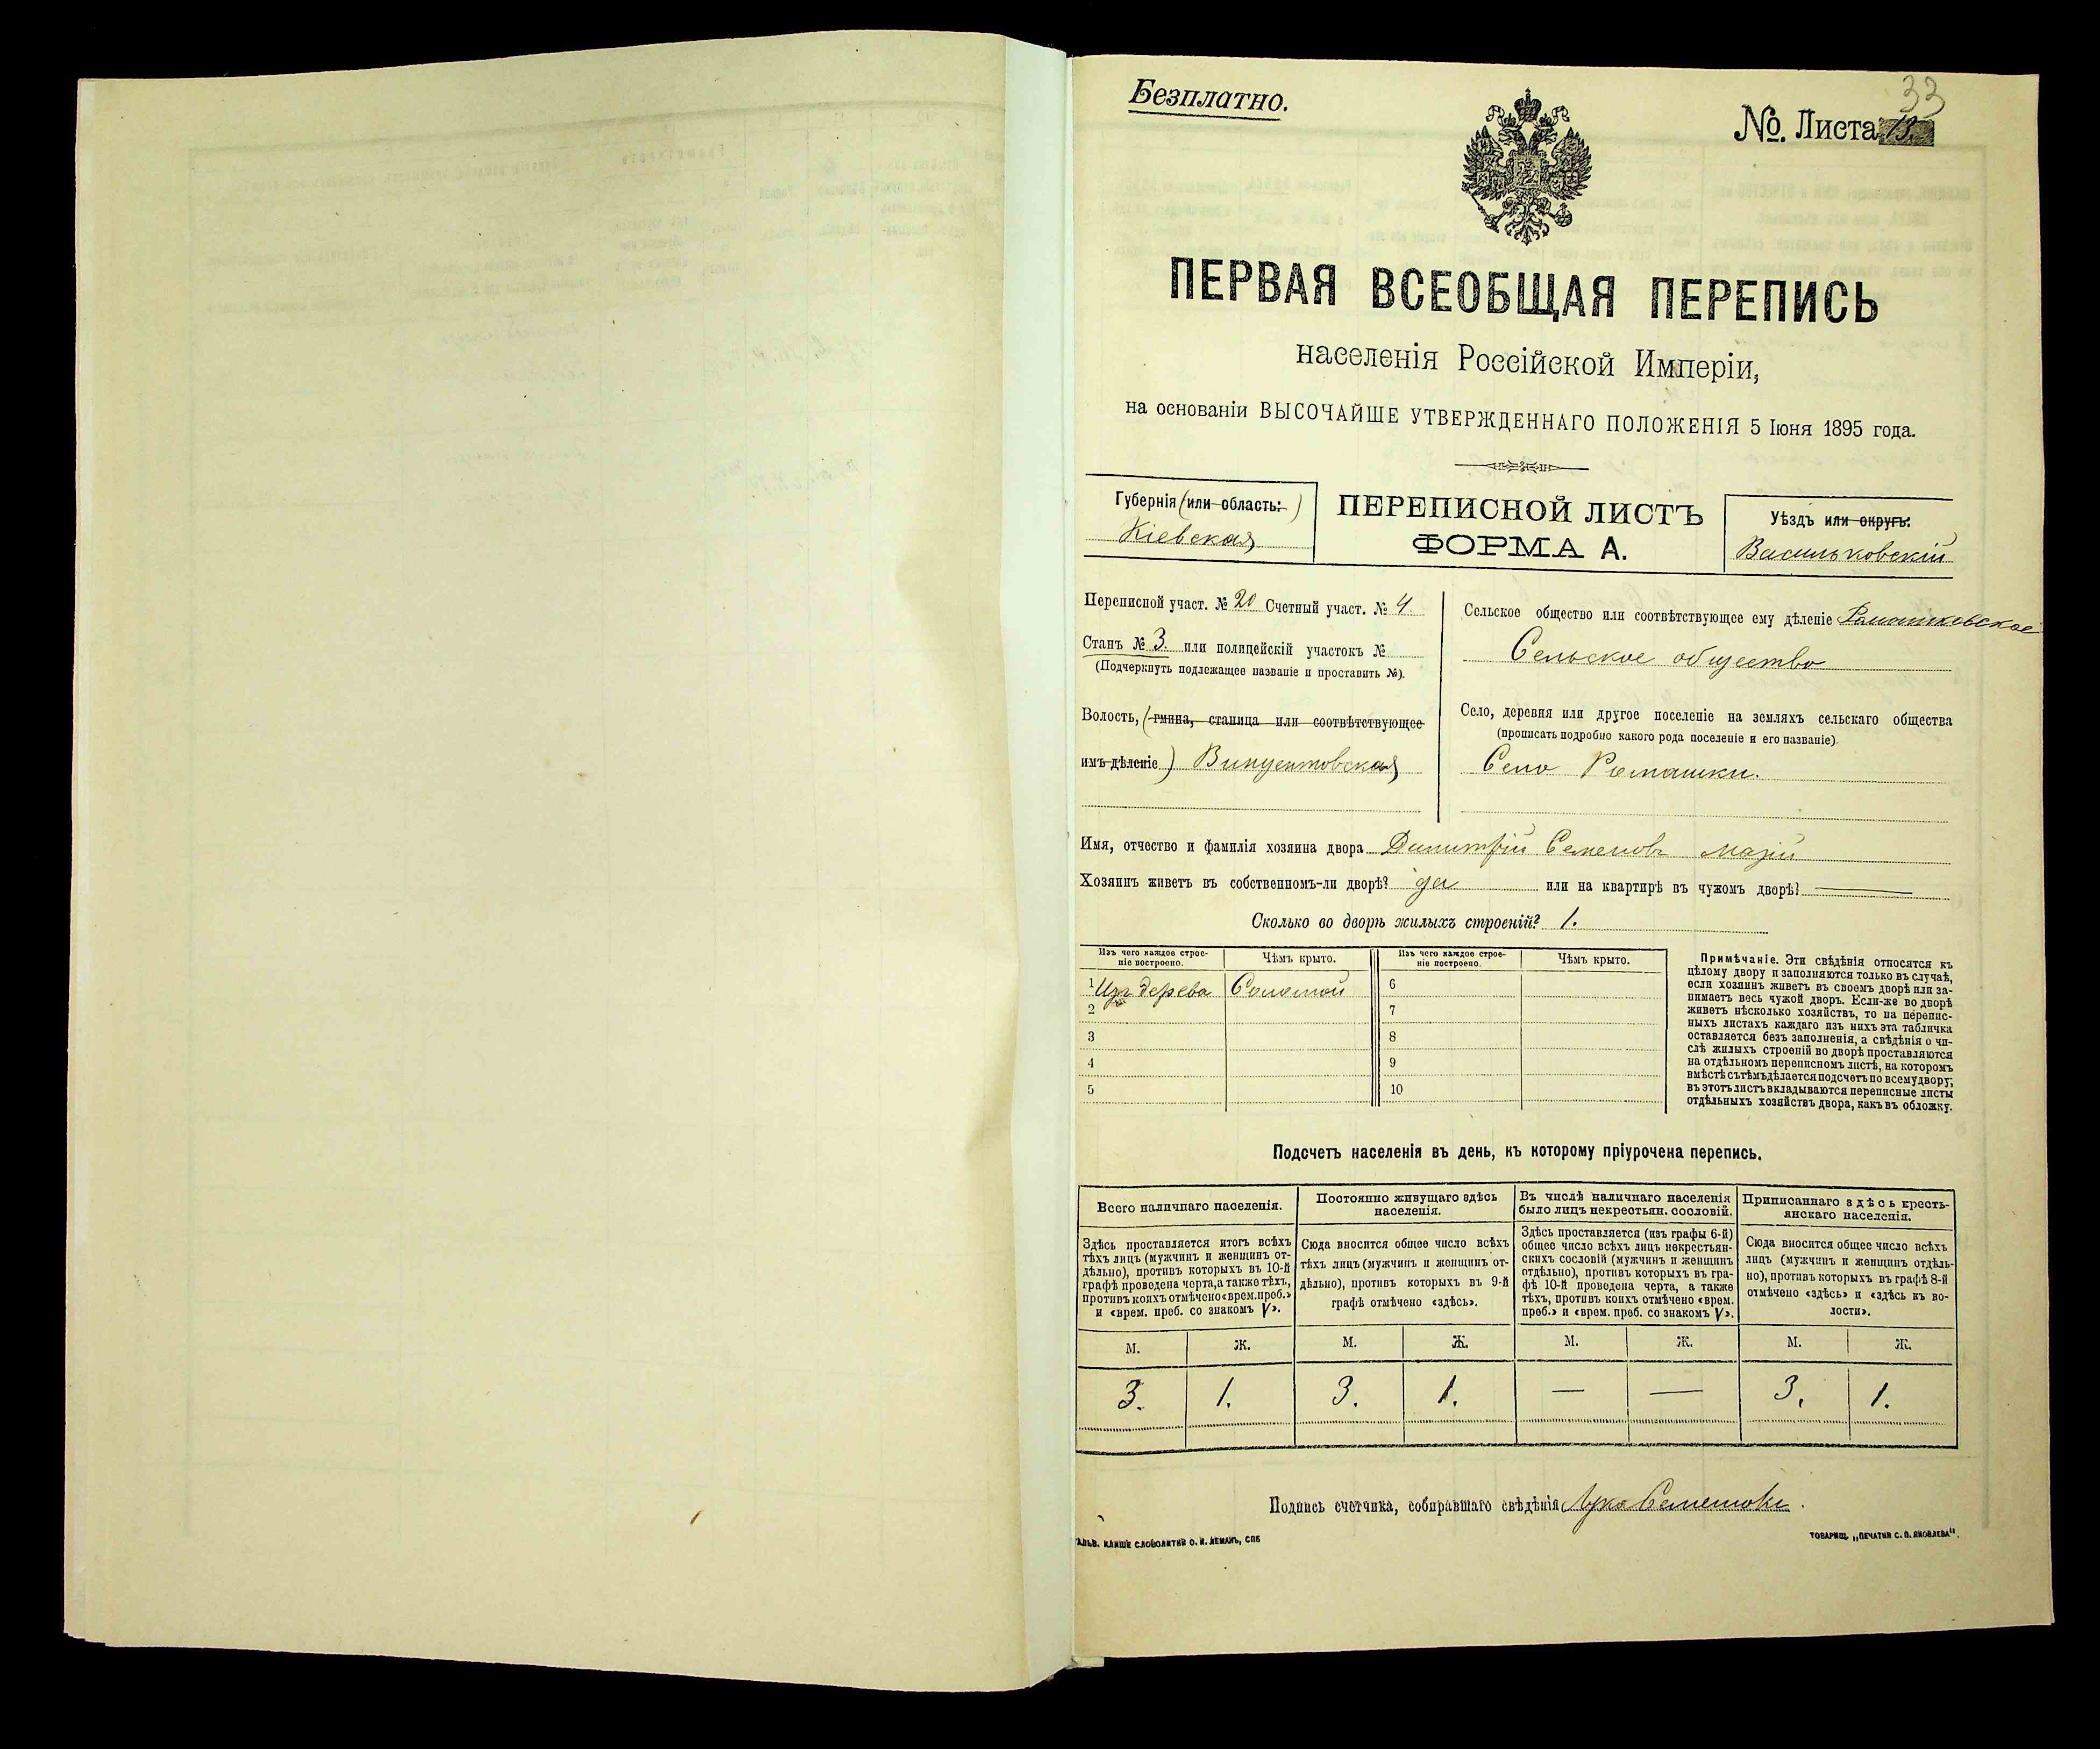 Безплатно.
33
№. Листа 13.
ПЕРВАЯ ВСЕОБЩАЯ ПЕРЕПИСЬ
населенія Россійской Имперіи,
на основаніи ВЫСОЧАЙШЕ УТВЕРЖДЕННАГО ПОЛОЖЕНІЯ 5 Іюня 1895 года.
Губернія (или область:)
Кіевская
ПЕРЕПИСНОЙ ЛИСТЪ
ФОРМА А.
Уѣздъ или округъ:
Васильковскій
Переписной участ. № 20 Счетный участ. № 4
Станъ № 3. или полицейскій участокъ №
(Подчеркнуть подлежащее названіе и проставить №).
Волость, (гмина, станица или соотвѣтствующее
имъ дѣленіе) Винцентовская
Сельское общество или соотвѣтствующее ему дѣленіе Ромашковское
Сельское общество
Село, деревня или другое поселеніе на земляхъ сельскаго общества
(прописать подробно какого рода поселеніе и его названіе).
Село Ромашки.
Имя, отчество и фамилія хозяина двора Димитрій Семеновъ Мазій
Хозяинъ живетъ въ собственномъ-ли дворѣ? да или на квартирѣ въ чужомъ дворѣ? —
Сколько во дворѣ жилыхъ строеній? 1.
Изъ чего каждое строе-
ніе построено.
Чѣмъ крыто.
Изъ чего каждое строе-
ніе построено.
Чѣмъ крыто.
1 Изъ дерева Соломой 6
2 7
3 8
4 9
5 10
Примѣчаніе. Эти свѣдѣнія относятся къ
цѣлому двору и заполняются только въ случаѣ,
если хозяинъ живетъ въ своемъ дворѣ или за-
нимаетъ весь чужой дворъ. Если-же во дворѣ
живетъ нѣсколько хозяйствъ, то на перепис-
ныхъ листахъ каждаго изъ нихъ эта табличка
оставляется безъ заполненія, а свѣдѣнія о чи-
слѣ жилыхъ строеній во дворѣ проставляются
на отдѣльномъ переписномъ листѣ, на которомъ
вмѣстѣ съ тѣмъ дѣлается подсчетъ по всему двору;
въ этотъ листъ вкладываются переписные листы
отдѣльныхъ хозяйствъ двора, какъ въ обложку.
Подсчетъ населенія въ день, къ которому пріурочена перепись.
Всего наличнаго населенія.
Здѣсь проставляется итогъ всѣхъ
тѣхъ лицъ (мужчинъ и женщинъ от-
дѣльно), противъ которыхъ въ 10-й
графѣ проведена черта, а также тѣхъ,
противъ коихъ отмѣчено «врем. преб.»
и «врем. преб. со знакомъ V».
Постоянно живущаго здѣсь
населенія.
Сюда вносится общее число всѣхъ
тѣхъ лицъ (мужчинъ и женщинъ от-
дѣльно), противъ которыхъ въ 9-й
графѣ отмѣчено «здѣсь».
Въ числѣ наличнаго населенія
было лицъ некрестьян. сословій.
Здѣсь проставляется (изъ графы 6-й)
общее число всѣхъ лицъ некрестьян-
скихъ сословій (мужчинъ и женщинъ
отдѣльно), противъ которыхъ въ гра-
фѣ 10-й проведена черта, а также
тѣхъ, противъ коихъ отмѣчено «врем.
преб.» и «врем. преб. со знакомъ V».
Приписаннаго здѣсь кресть-
янскаго населенія.
Сюда вносится общее число всѣхъ
лицъ (мужчинъ и женщинъ отдѣль-
но), противъ которыхъ въ графѣ 8-й
отмѣчено «здѣсь» и «здѣсь къ во-
лости».
М. Ж. М. Ж. М. Ж. М. Ж.
3. 1. 3. 1. — — 3. 1.
Подпись счетчика, собиравшаго свѣдѣнія Лука
ГАЛЬВ. КЛИШЕ СЛОВОЛИТНИ О. И. ЛЕМАНЪ, СПБ
ТОВАРИЩ. „ПЕЧАТНЯ С. П. ЯКОВЛЕВА“.